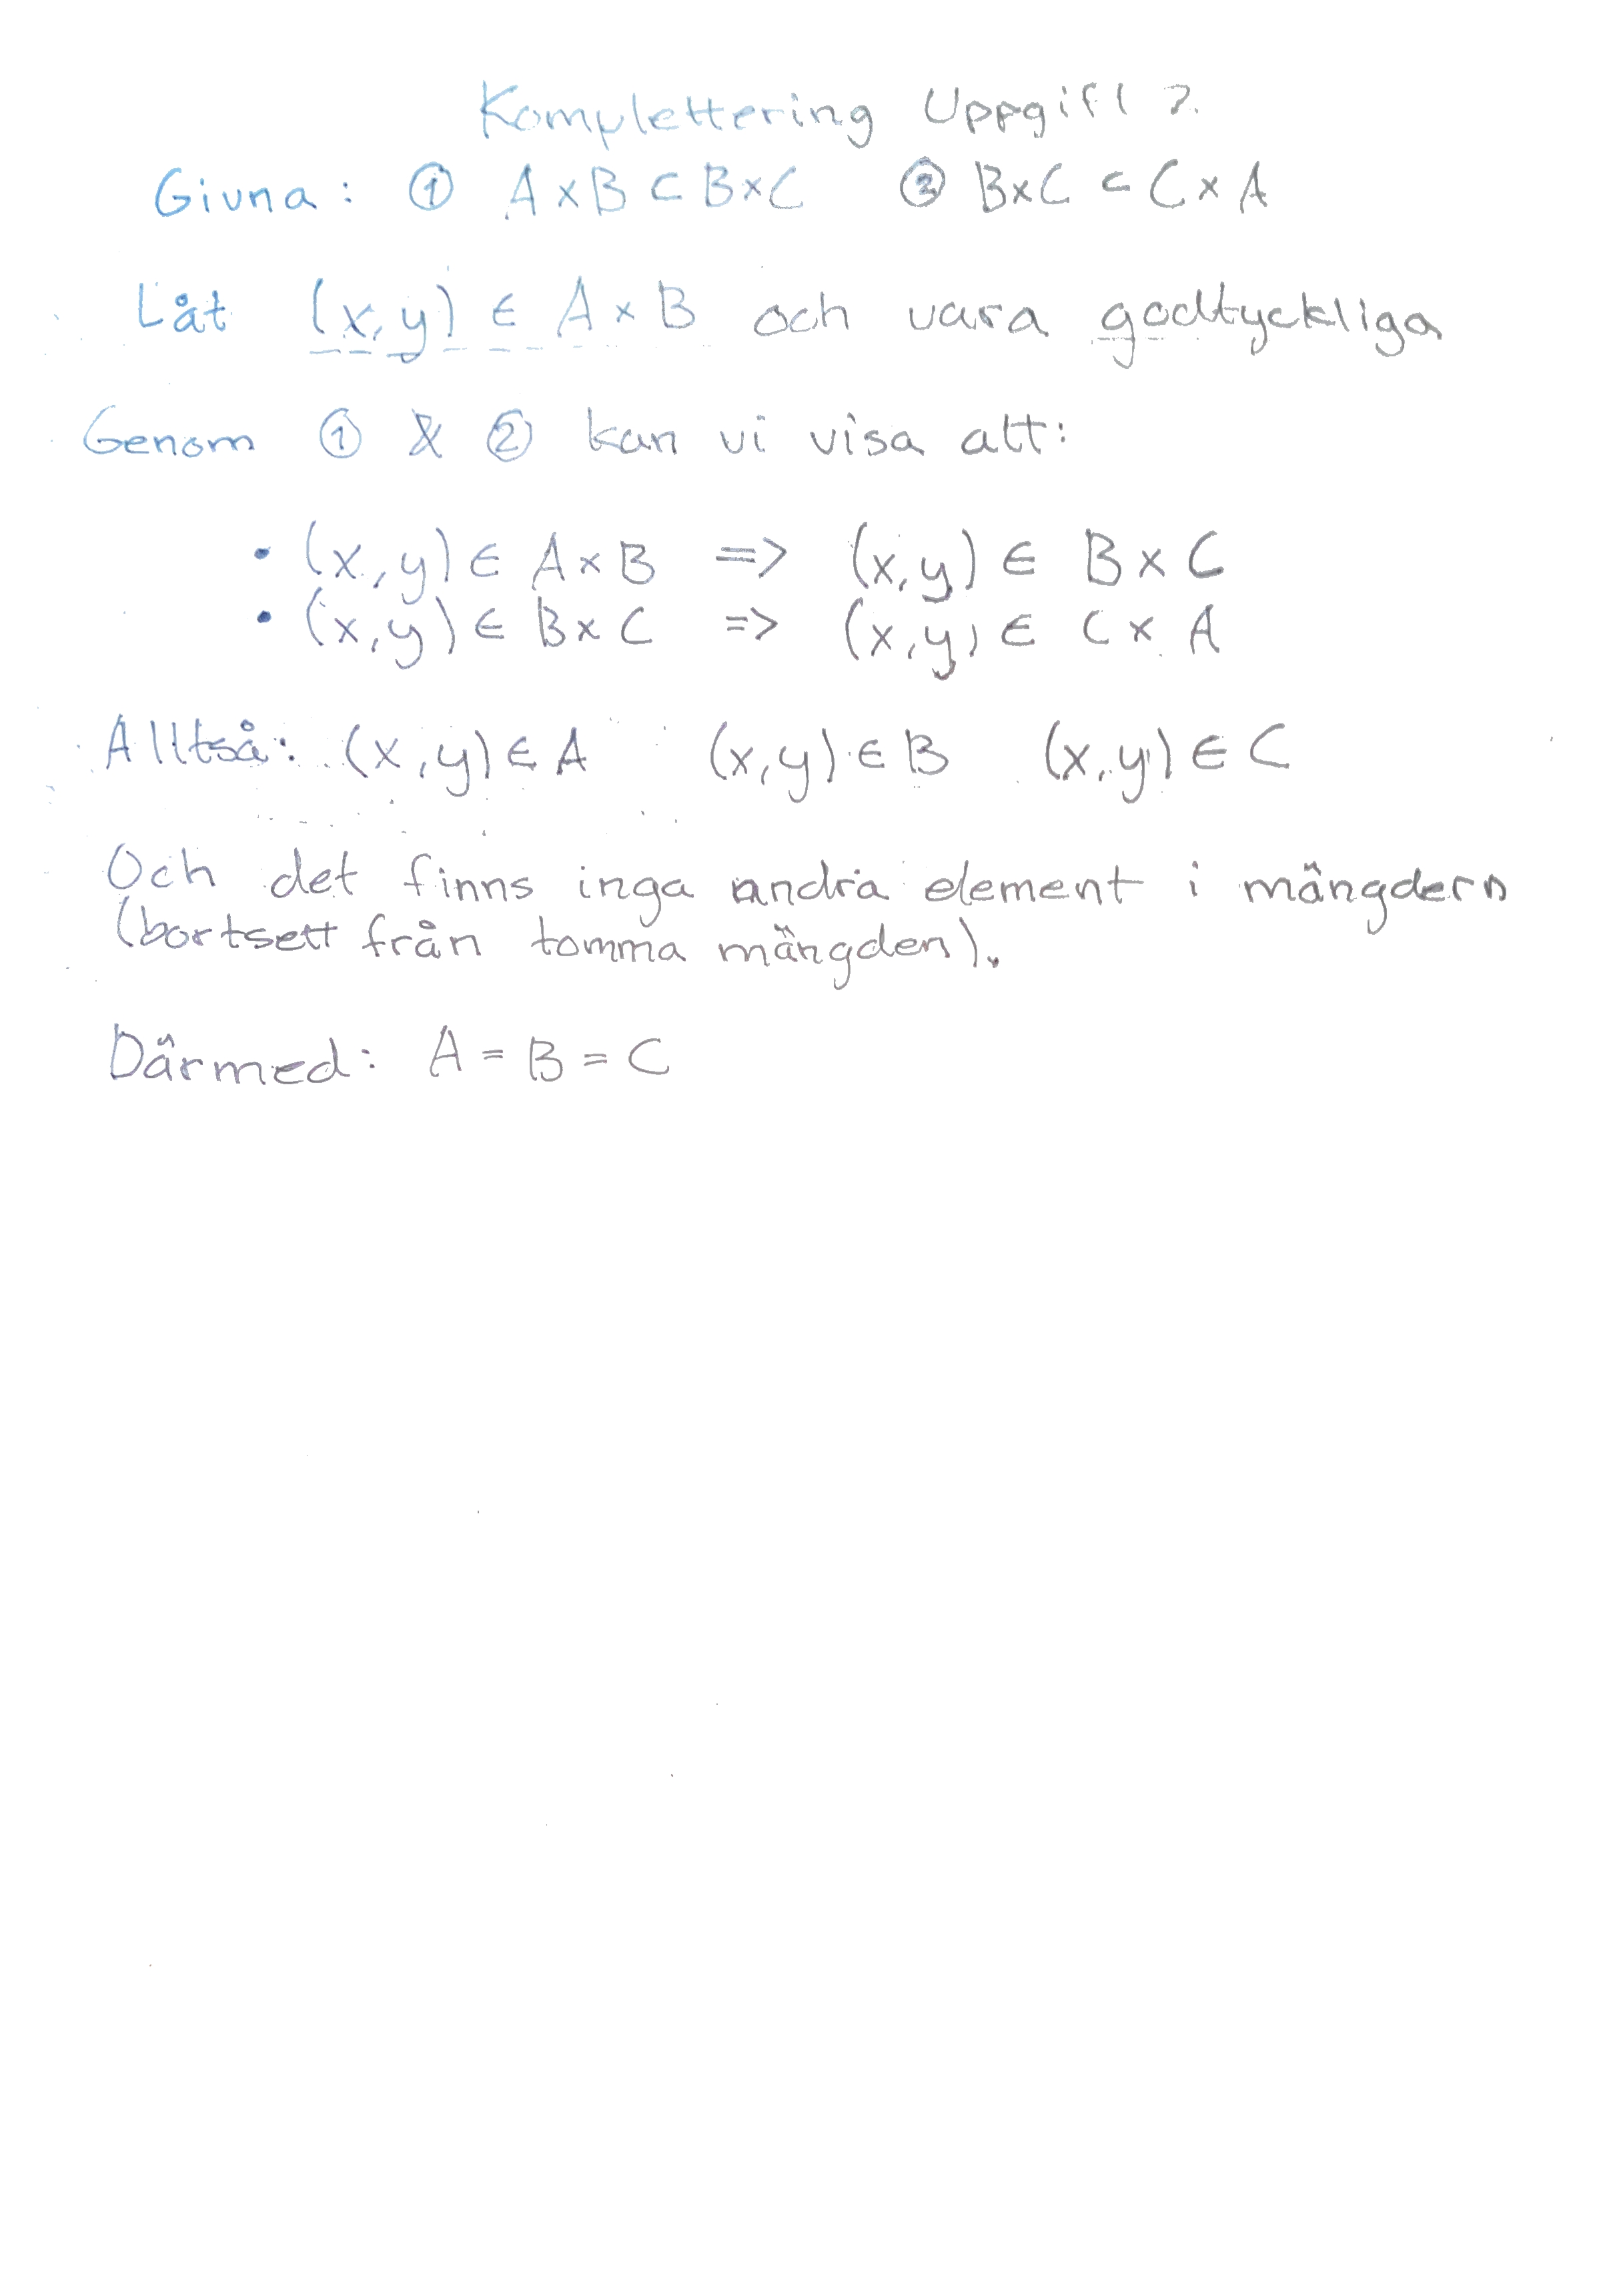 Komplettering Uppgift 2.
Givna: ① A×B ⊂ B×C ② B×C ⊂ C×A
Låt (x,y) ∈ A×B och vara godtyckliga
Genom ① & ② kan vi visa att:
• (x,y) ∈ A×B => (x,y) ∈ B×C
• (x,y) ∈ B×C => (x,y) ∈ C×A
Alltså: (x,y) ∈ A (x,y) ∈ B (x,y) ∈ C
Och det finns inga andra element i mängdern
(bortsett från tomma mängden).
Därmed: A = B = C